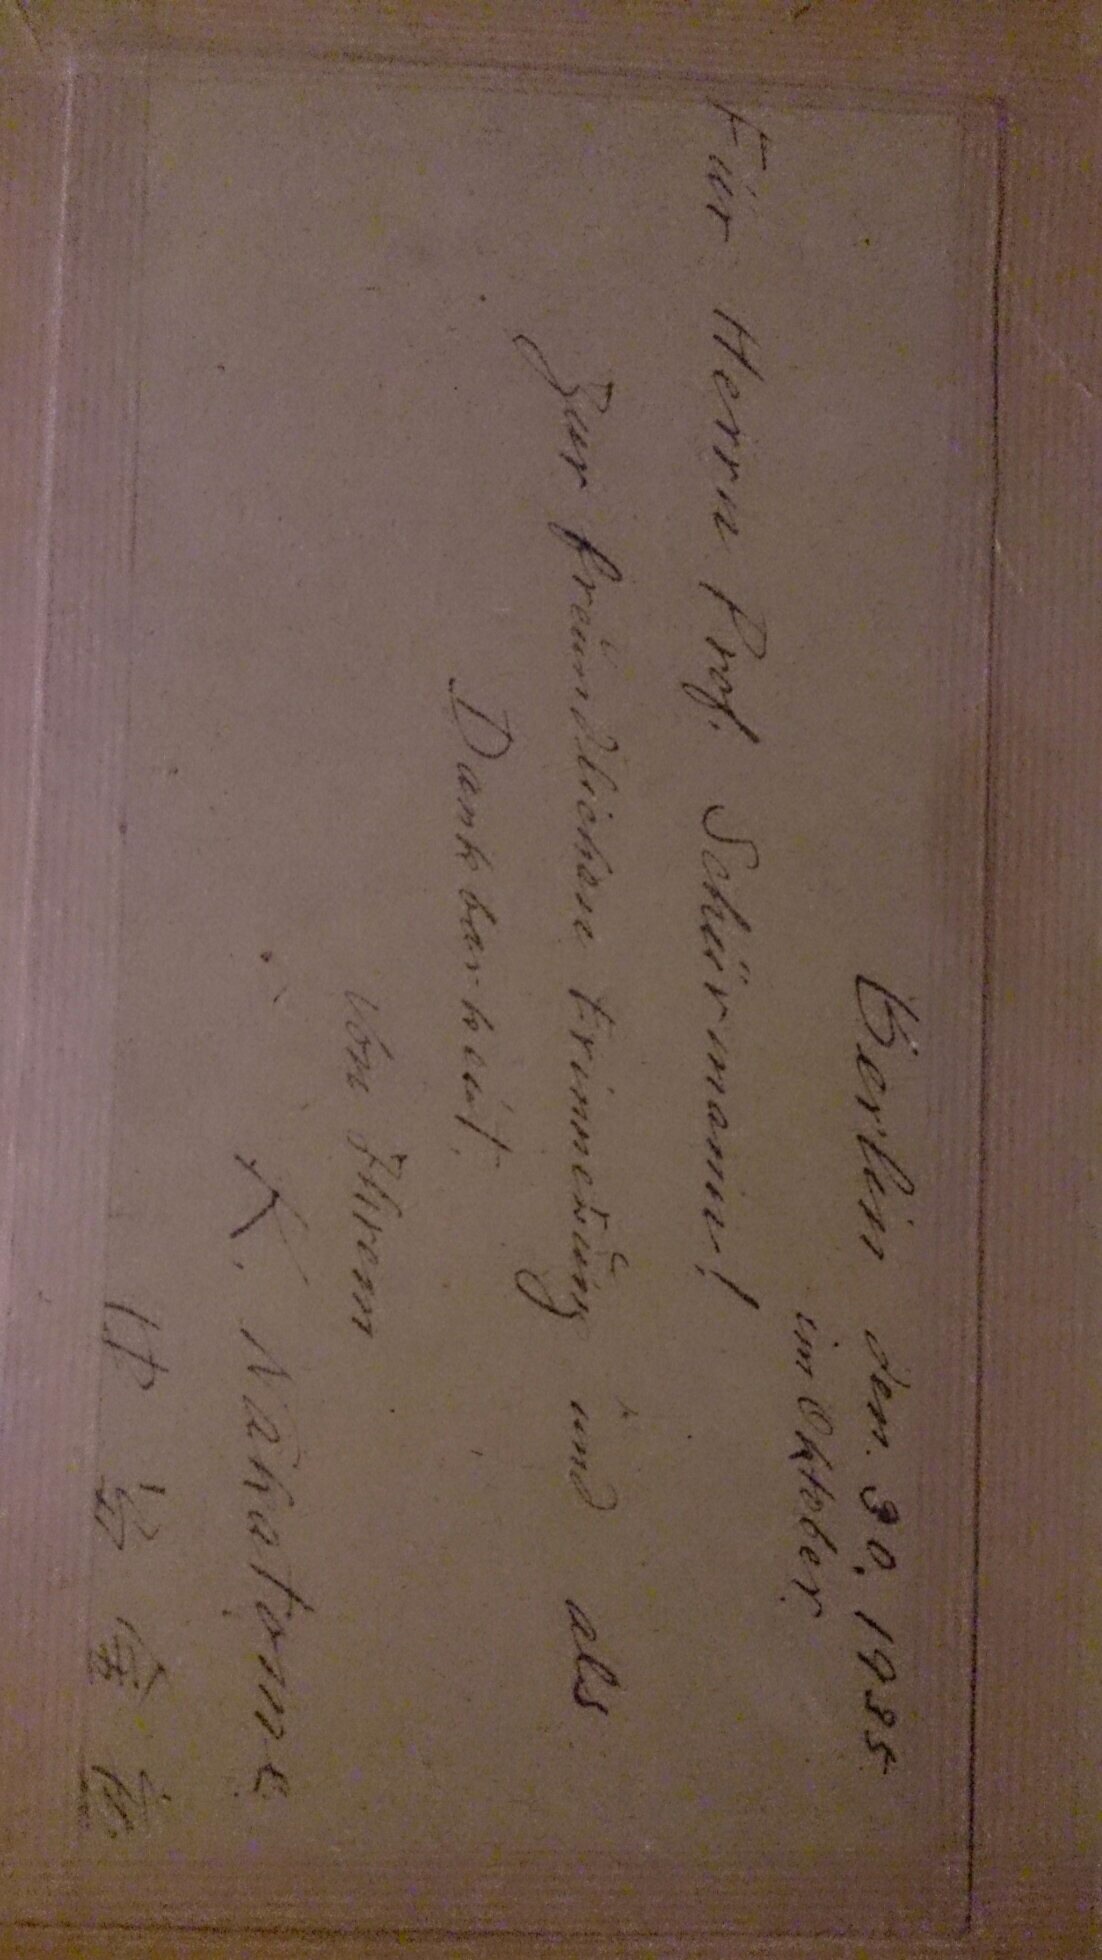 Berlin den. 30. 1935
im Oktober.
Für Herrn Prof. Schürmann!
Zur freundlichen Erinnerung und als
Dankbarkeit.
Von Ihrem
K. Nakatome
中留金蔵